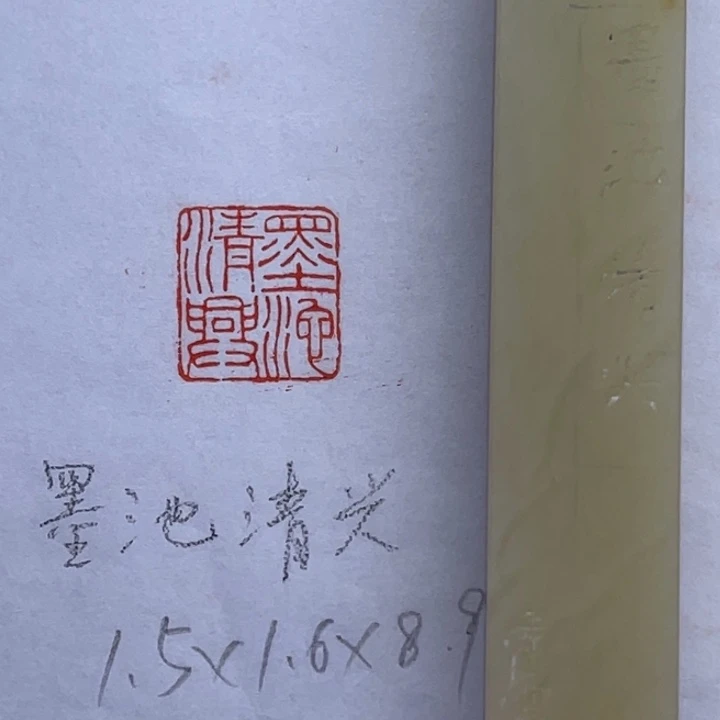 墨池
清興
墨池清兴
1.5×1.6×8.9